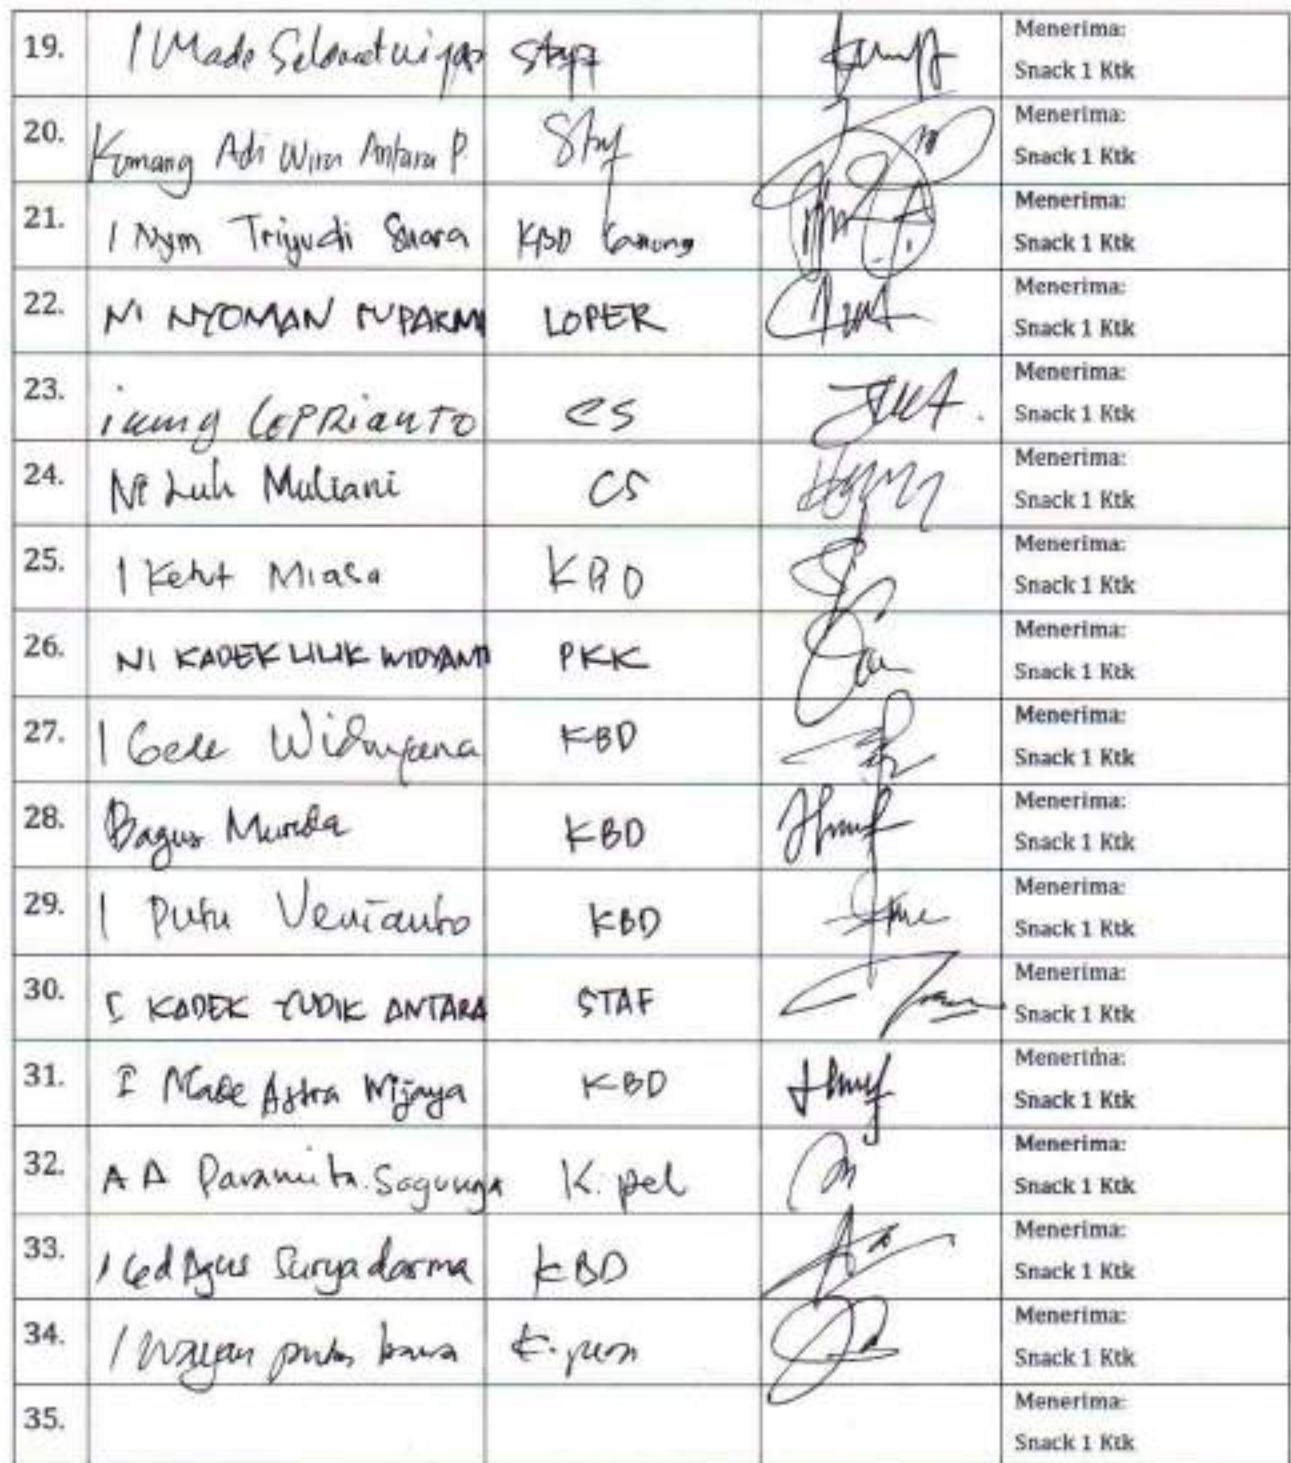 19. I Made Selamat Staf Menerima:
Snack 1 Ktk
20. Komang Adi Wira Antara P. Staf Menerima:
Snack 1 Ktk
21. I Nym Triyudi KBD Menerima:
Snack 1 Ktk
22. NI NYOMAN LOPER Menerima:
Snack 1 Ktk
23. CS Menerima:
Snack 1 Ktk
24. Ni Luh Muliani CS Menerima:
Snack 1 Ktk
25. I Ketut Miasa KBD Menerima:
Snack 1 Ktk
26. NI KADEK LILIK WIDYANTI PKK Menerima:
Snack 1 Ktk
27. I Gede Widnyana KBD Menerima:
Snack 1 Ktk
28. Bagus KBD Menerima:
Snack 1 Ktk
29. I Putu KBD Menerima:
Snack 1 Ktk
30. I KADEK YUDIK ANTARA STAF Menerima:
Snack 1 Ktk
31. I Made Astra Wijaya KBD Menerima:
Snack 1 Ktk
32. A A Paramita K. pel Menerima:
Snack 1 Ktk
33. I Ged Agus Suryadarma KBD Menerima:
Snack 1 Ktk
34. I Wayan Menerima:
Snack 1 Ktk
35. Menerima:
Snack 1 Ktk